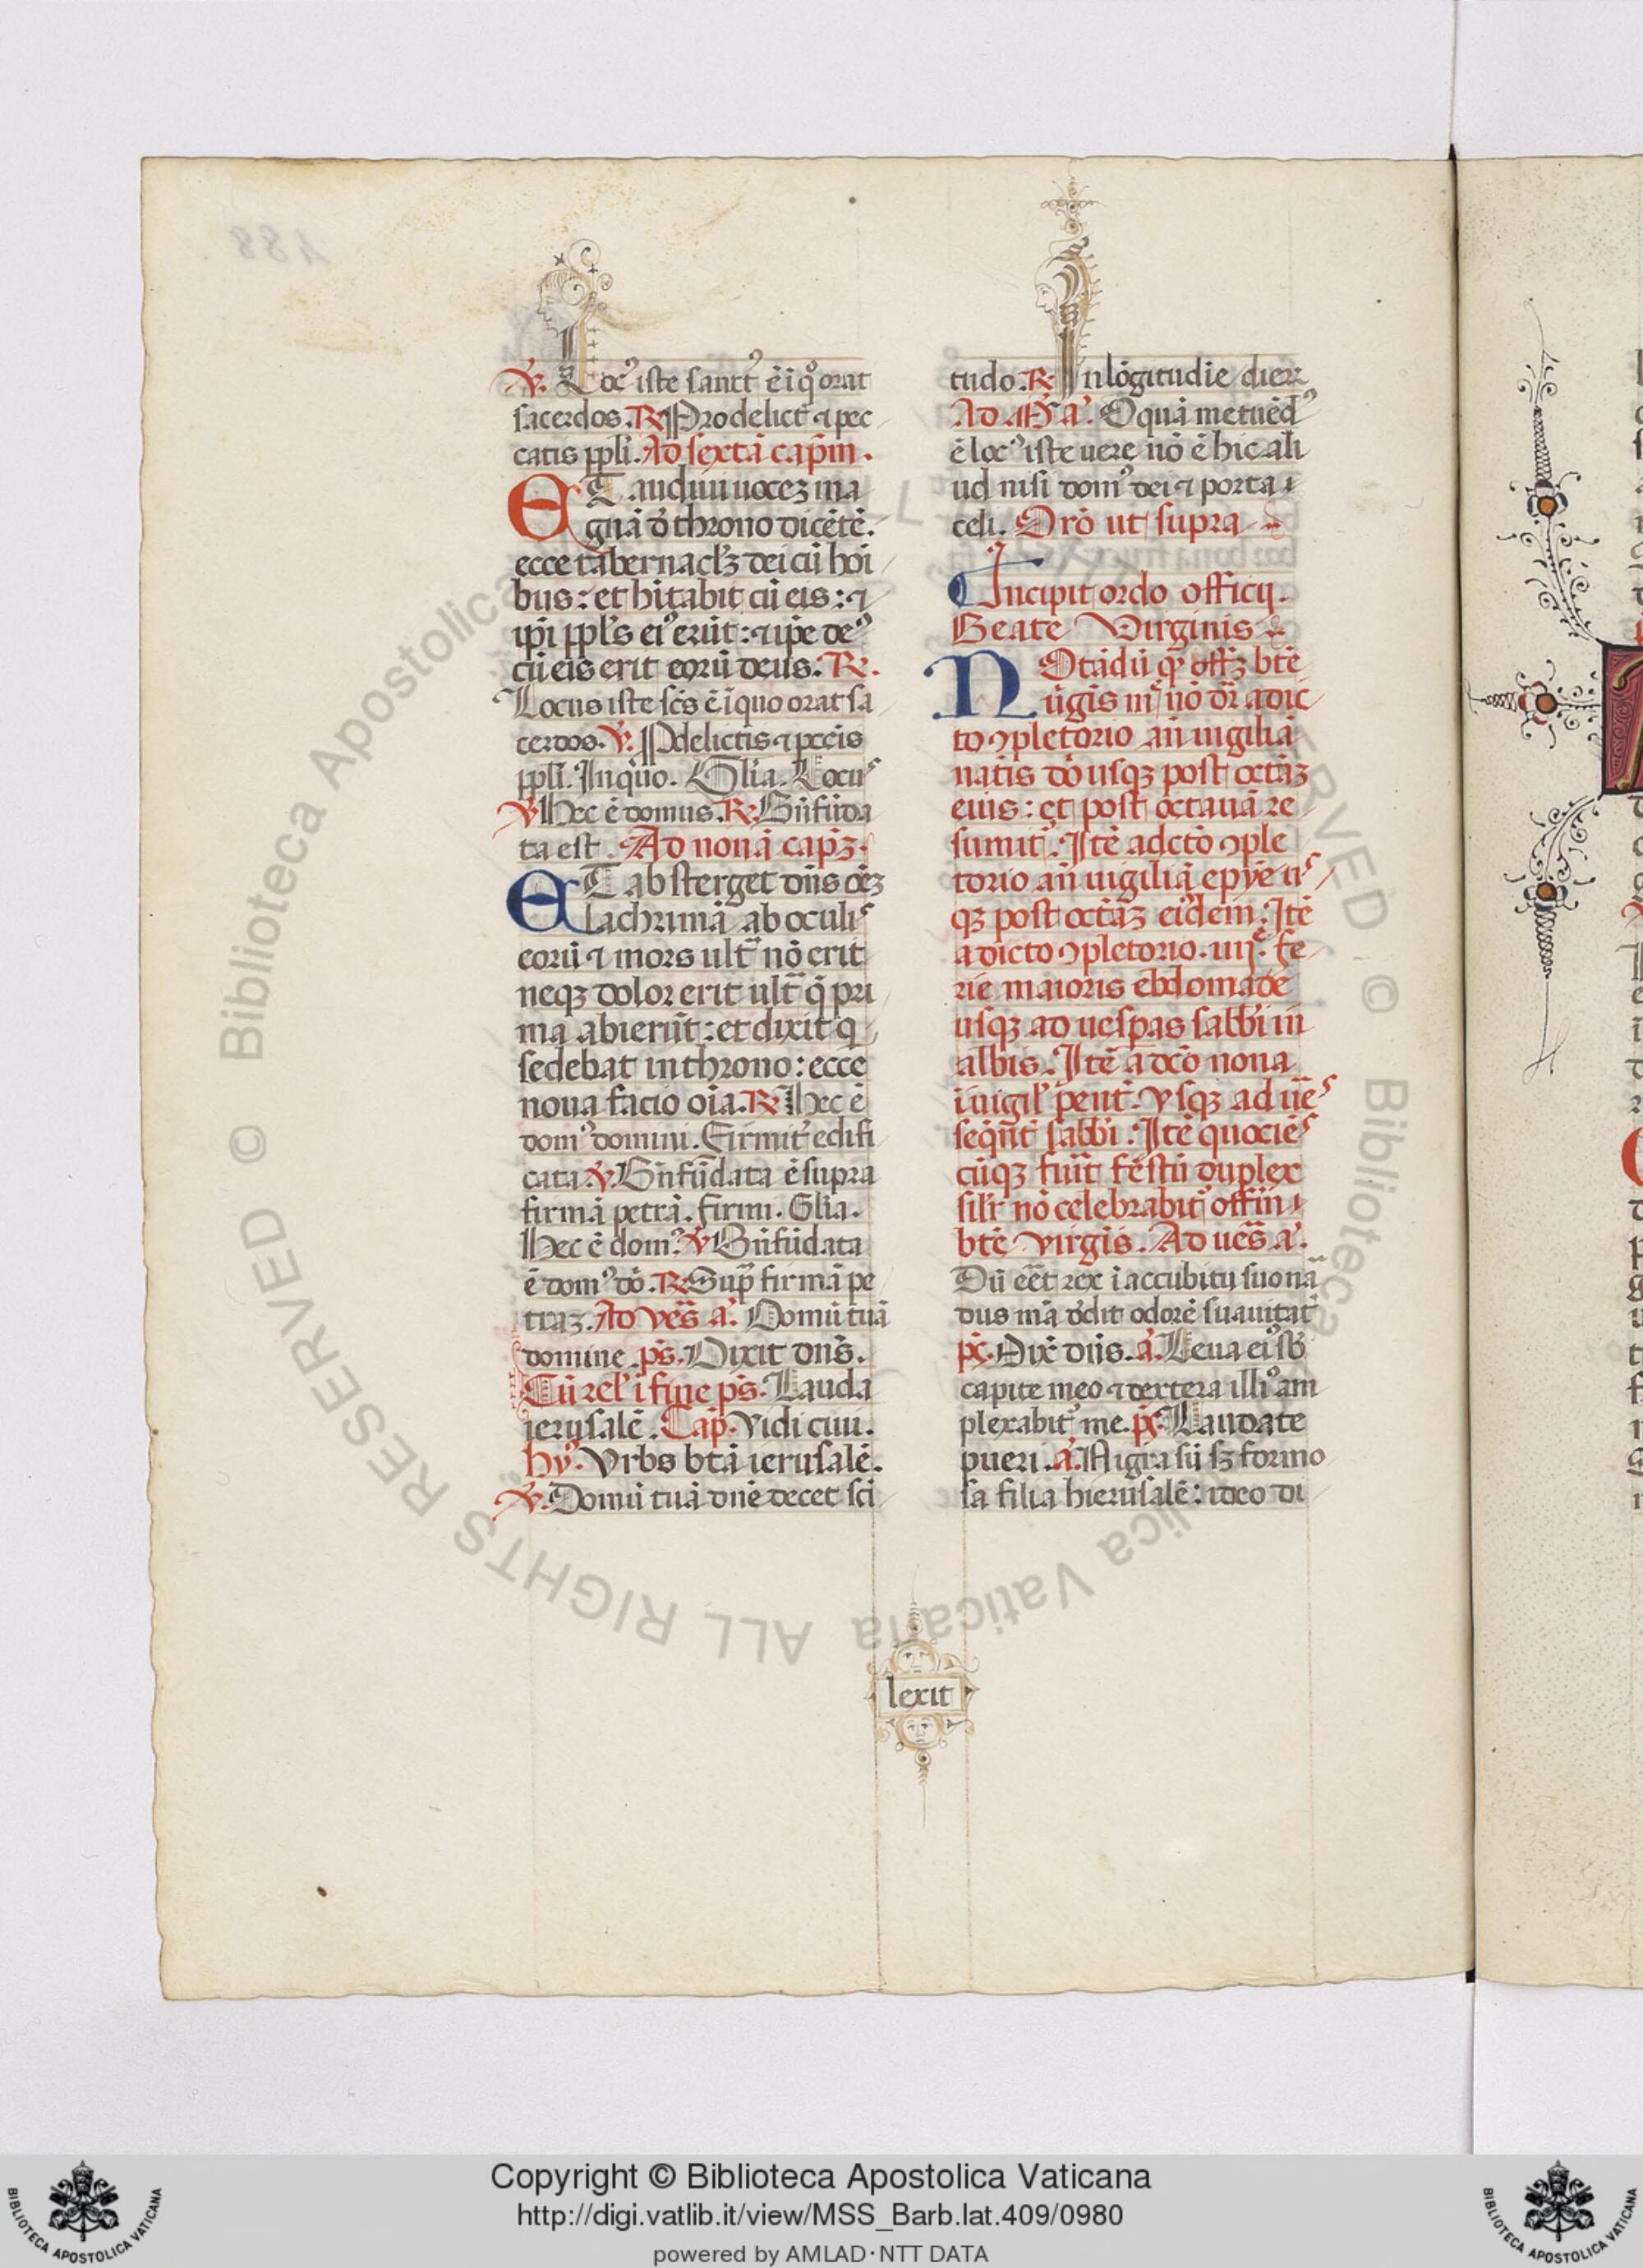 ℣. Locꝰ iste sanctꝰ ē ī q̊ orat
sacerdos. ℟ Pro delict̄ ⁊ pec
catis ppl̄i. Ad sextā cap̄m.
ET audiui uocez ma
gnā d̄ throno dicētē.
ecce tabernacl'ꝫ dei cū hōi
bus: et hītabit cū eis: ⁊
ip̄i ppl's eiꝰ erūt: ⁊ ip̄e deꝰ
cū eis erit eorū deus: ℟.
Locus iste sc̄s ē ī quo orat sa
cerdos. ℣. P delictis ⁊ pccīs
ppl̄i. In quo. Glīa. Locus
℣ Hec ē domus. ℟. Bn̄ fūda
ta est. Ad nonā capꝫ.
ET absterget dn̄s oēꝫ
lachrimā ab oculis
eorū ⁊ mors ult̄ nō erit
neqꝫ dolor erit ult̄ q̄ pri
ma abierūt: et dixit q
sedebat in throno: ecce
noua facio oīa. ℟ Hec ē
domꝰ domini. Firmit̄ edifi
cata ℣ Bn̄ fūdata ē supra
firmā petrā. firmi. Glīa.
Hec ē domꝰ. ℣ Bn̄ fūdata
ē domꝰ dō. ℟ Sup̄ firmā pe
traꝫ. Ad ves̄ a. Domū tuā
domine. ps̄. Dixit dn̄s.
Cū rel' ī fine ps̄. Lauda
ierusalē. Cap̄. Vidi ciui.
hyꝰ. Vrbs btā ierusalē.
℣. Domū tuā dn̄e decet sci
tudo. ℟ In lōgitudīe dierꝝ
Ad M̄ a. O quā metuēdꝰ
ē locꝰ iste uere nō ē hic ali
ud nisi domꝰ dei ⁊ porta
celi. Orō ut supra
Incipit ordo officij.
Beate Virginis
NOtādū qꝫ offꝫ btē
ūgīs m̄ nō dr̄ a dic
to ꝯpletorio an̄ uigiliā
natīs dō usqꝫ post octāꝫ
eius: et post octauā re
sumit̄. Itē a dcto ꝯple
torio an̄ uigiliā epyē us
qꝫ post octāꝫ eiusdem. Itē
a dicto ꝯpletorio. iiij. fe
rie maioris ebdomade
usqꝫ ad uespas sabbī in
albis. Itē a dc̄o nona
ī uigil' pent̄. vsqꝫ ad ues̄
seqn̄t sabbī. Itē quociēs
cūqꝫ fuīt fēstū duplex
silr̄ nō celebrabit̄ offm̄
btē virgīs. Ad ues̄ a.
Dū eēt rex ī accubitu suo nā
dus mā dedit odorē suauitat̄
pˢ. Dix̄ dn̄s. a. Leua eiꝰ sb̄
capite meo ⁊ dextera illiꝰ am
plexabit̄ me. pˢ. Laudate
pueri. a. Nigra sū sꝫ formo
sa filia hierusalē: ideo di
lexit
Copyright © Biblioteca Apostolica Vaticana
http://digi.vatlib.it/view/MSS_Barb.lat.409/0980
powered by AMLAD·NTT DATA